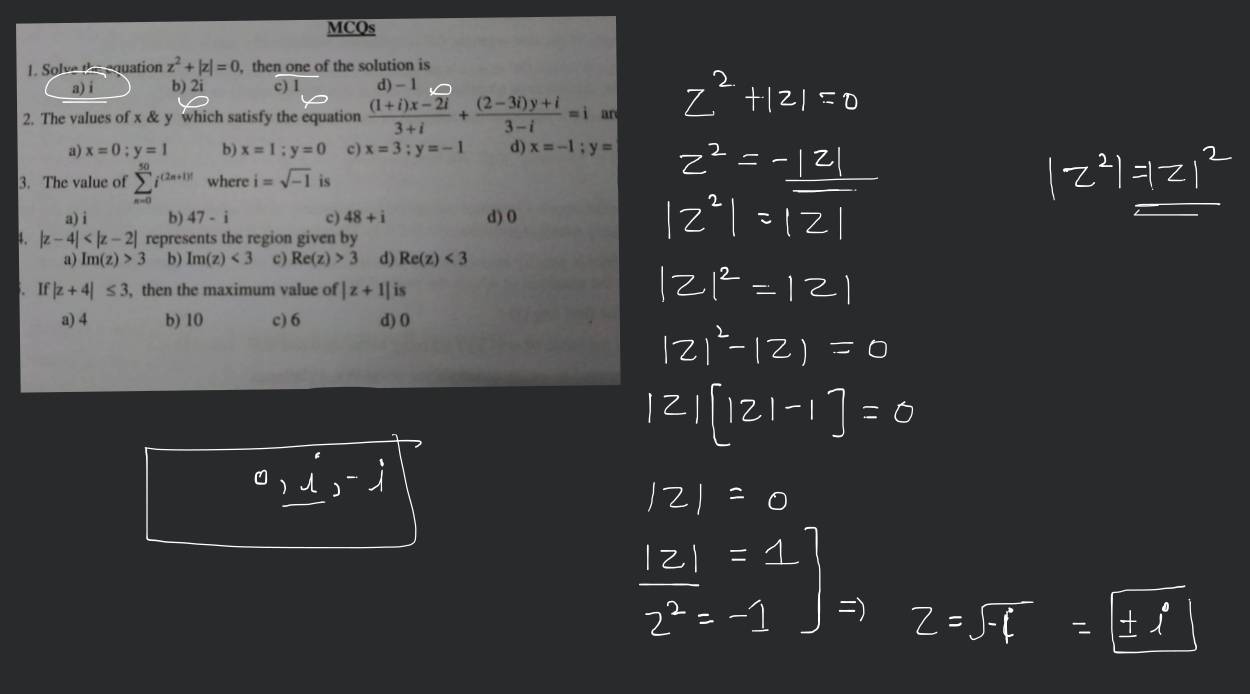 MCQs
1. Solve the equation z² + |z| = 0, then one of the solution is
a) i b) 2i c) 1 d) – 1
2. The values of x & y which satisfy the equation (1+i)x – 2i / 3+i + (2 – 3i)y + i / 3 – i = i are
a) x = 0 ; y = 1 b) x = 1 ; y = 0 c) x = 3 ; y = – 1 d) x = –1 ; y =
3. The value of ∑ₙ₌₀⁵⁰ i^(2n+1)! where i = √–1 is
a) i b) 47 - i c) 48 + i d) 0
4. |z – 4| < |z – 2| represents the region given by
a) Im(z) > 3 b) Im(z) < 3 c) Re(z) > 3 d) Re(z) < 3
. If |z + 4| ≤ 3, then the maximum value of | z + 1| is
a) 4 b) 10 c) 6 d) 0
0, i, - i
z² + |z| = 0
z² = - |z|
|z²| = |z|
|z|² = |z|
|z|² - |z| = 0
|z| [|z| - 1] = 0
|z| = 0
|z| = 1
z² = -1 ⇒ z = √-1 = ± i
|z²| = |z|²